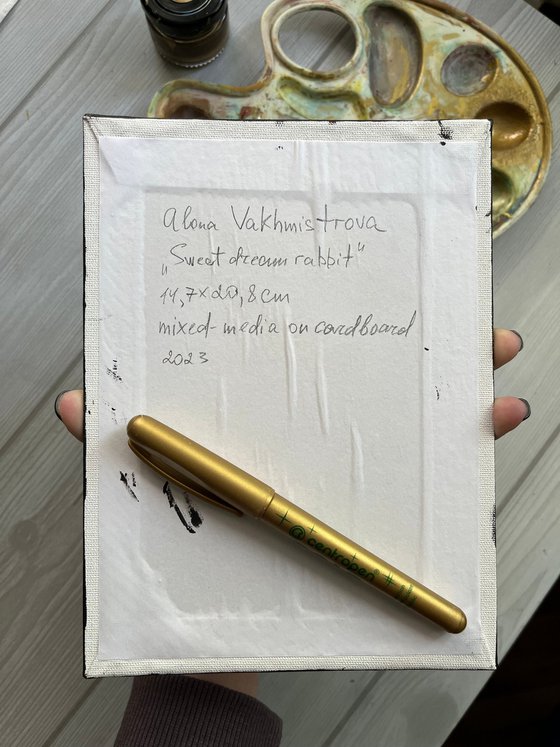 Alona Vakhmistrova
„Sweet dream rabbit"
14,7×20,8cm
mixed-media on cardboard
2023
@centropen